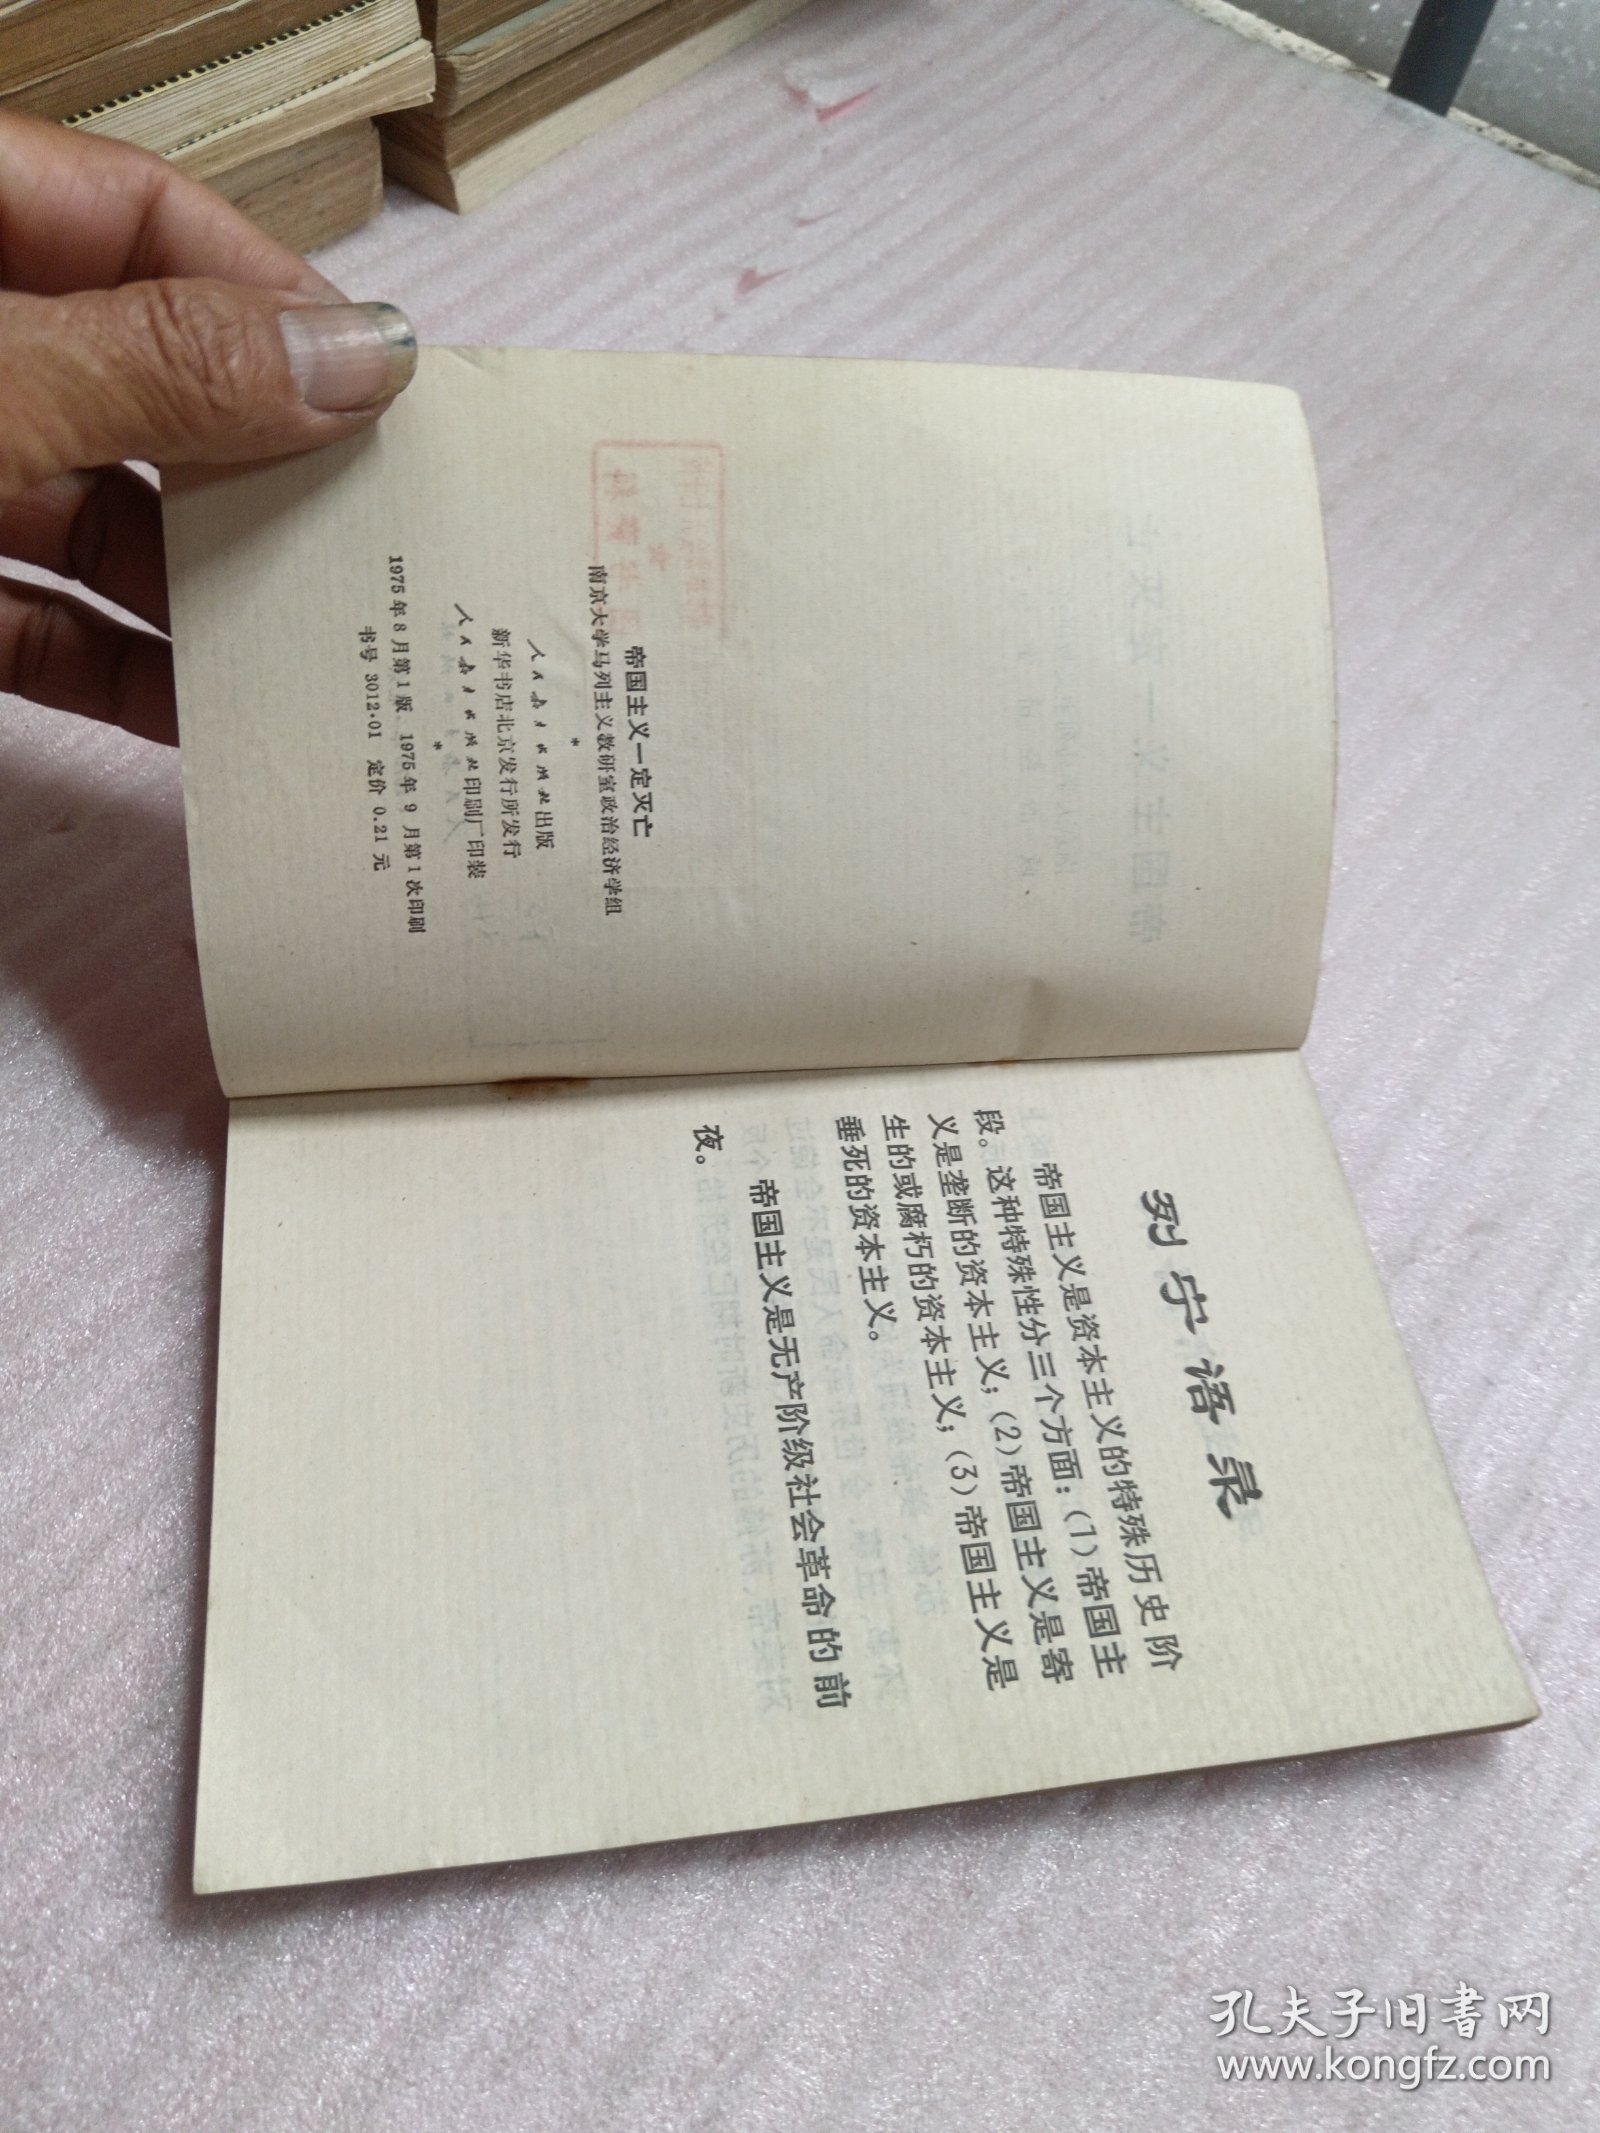 帝国主义一定灭亡
南京大学马列主义教研室政治经济学组
*
人民教育出版社出版
新华书店北京发行所发行
人民教育出版社印刷厂印装
*
1975年8月第1版 1975年9月第1次印刷
书号 3012·01 定价 0.21 元
列宁语录
帝国主义是资本主义的特殊历史阶
段。这种特殊性分三个方面：(1)帝国主
义是垄断的资本主义；(2)帝国主义是寄
生的或腐朽的资本主义；(3)帝国主义是
垂死的资本主义。
帝国主义是无产阶级社会革命的前
夜。
孔夫子旧书网
www.kongfz.com